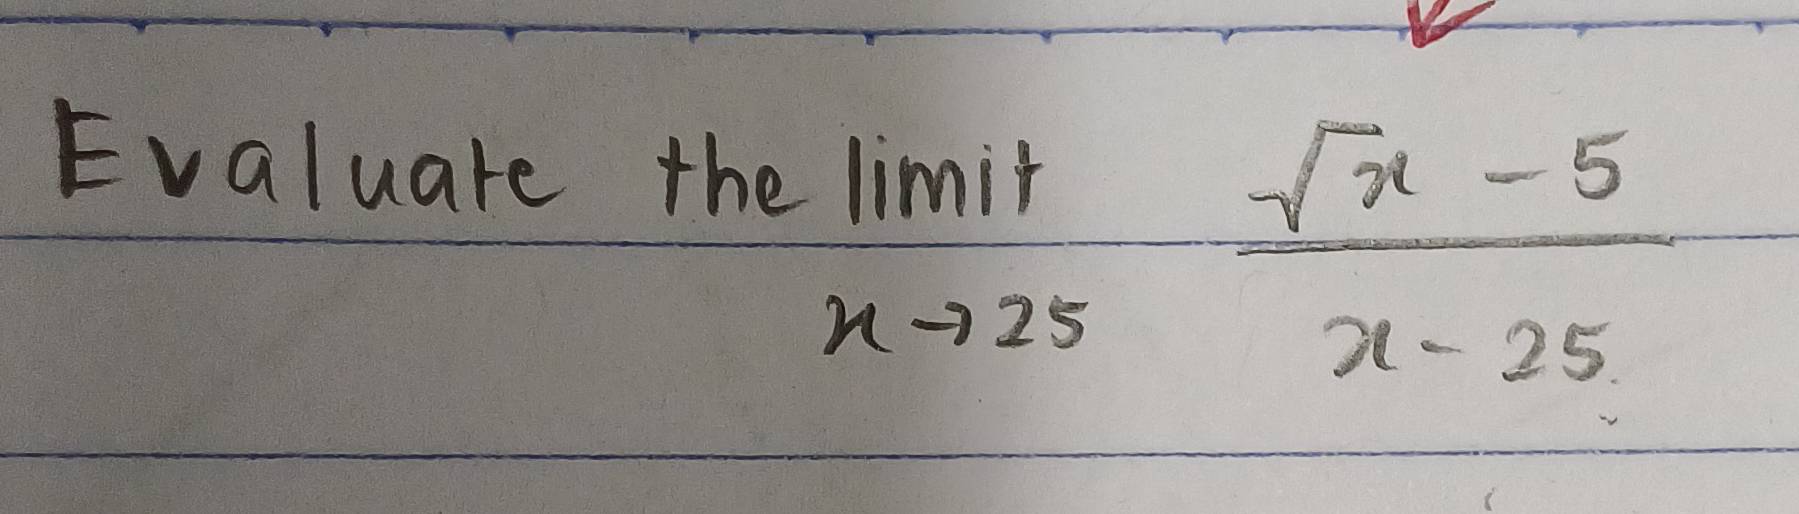 Evaluate the limit √x - 5
x → 25 x - 25.